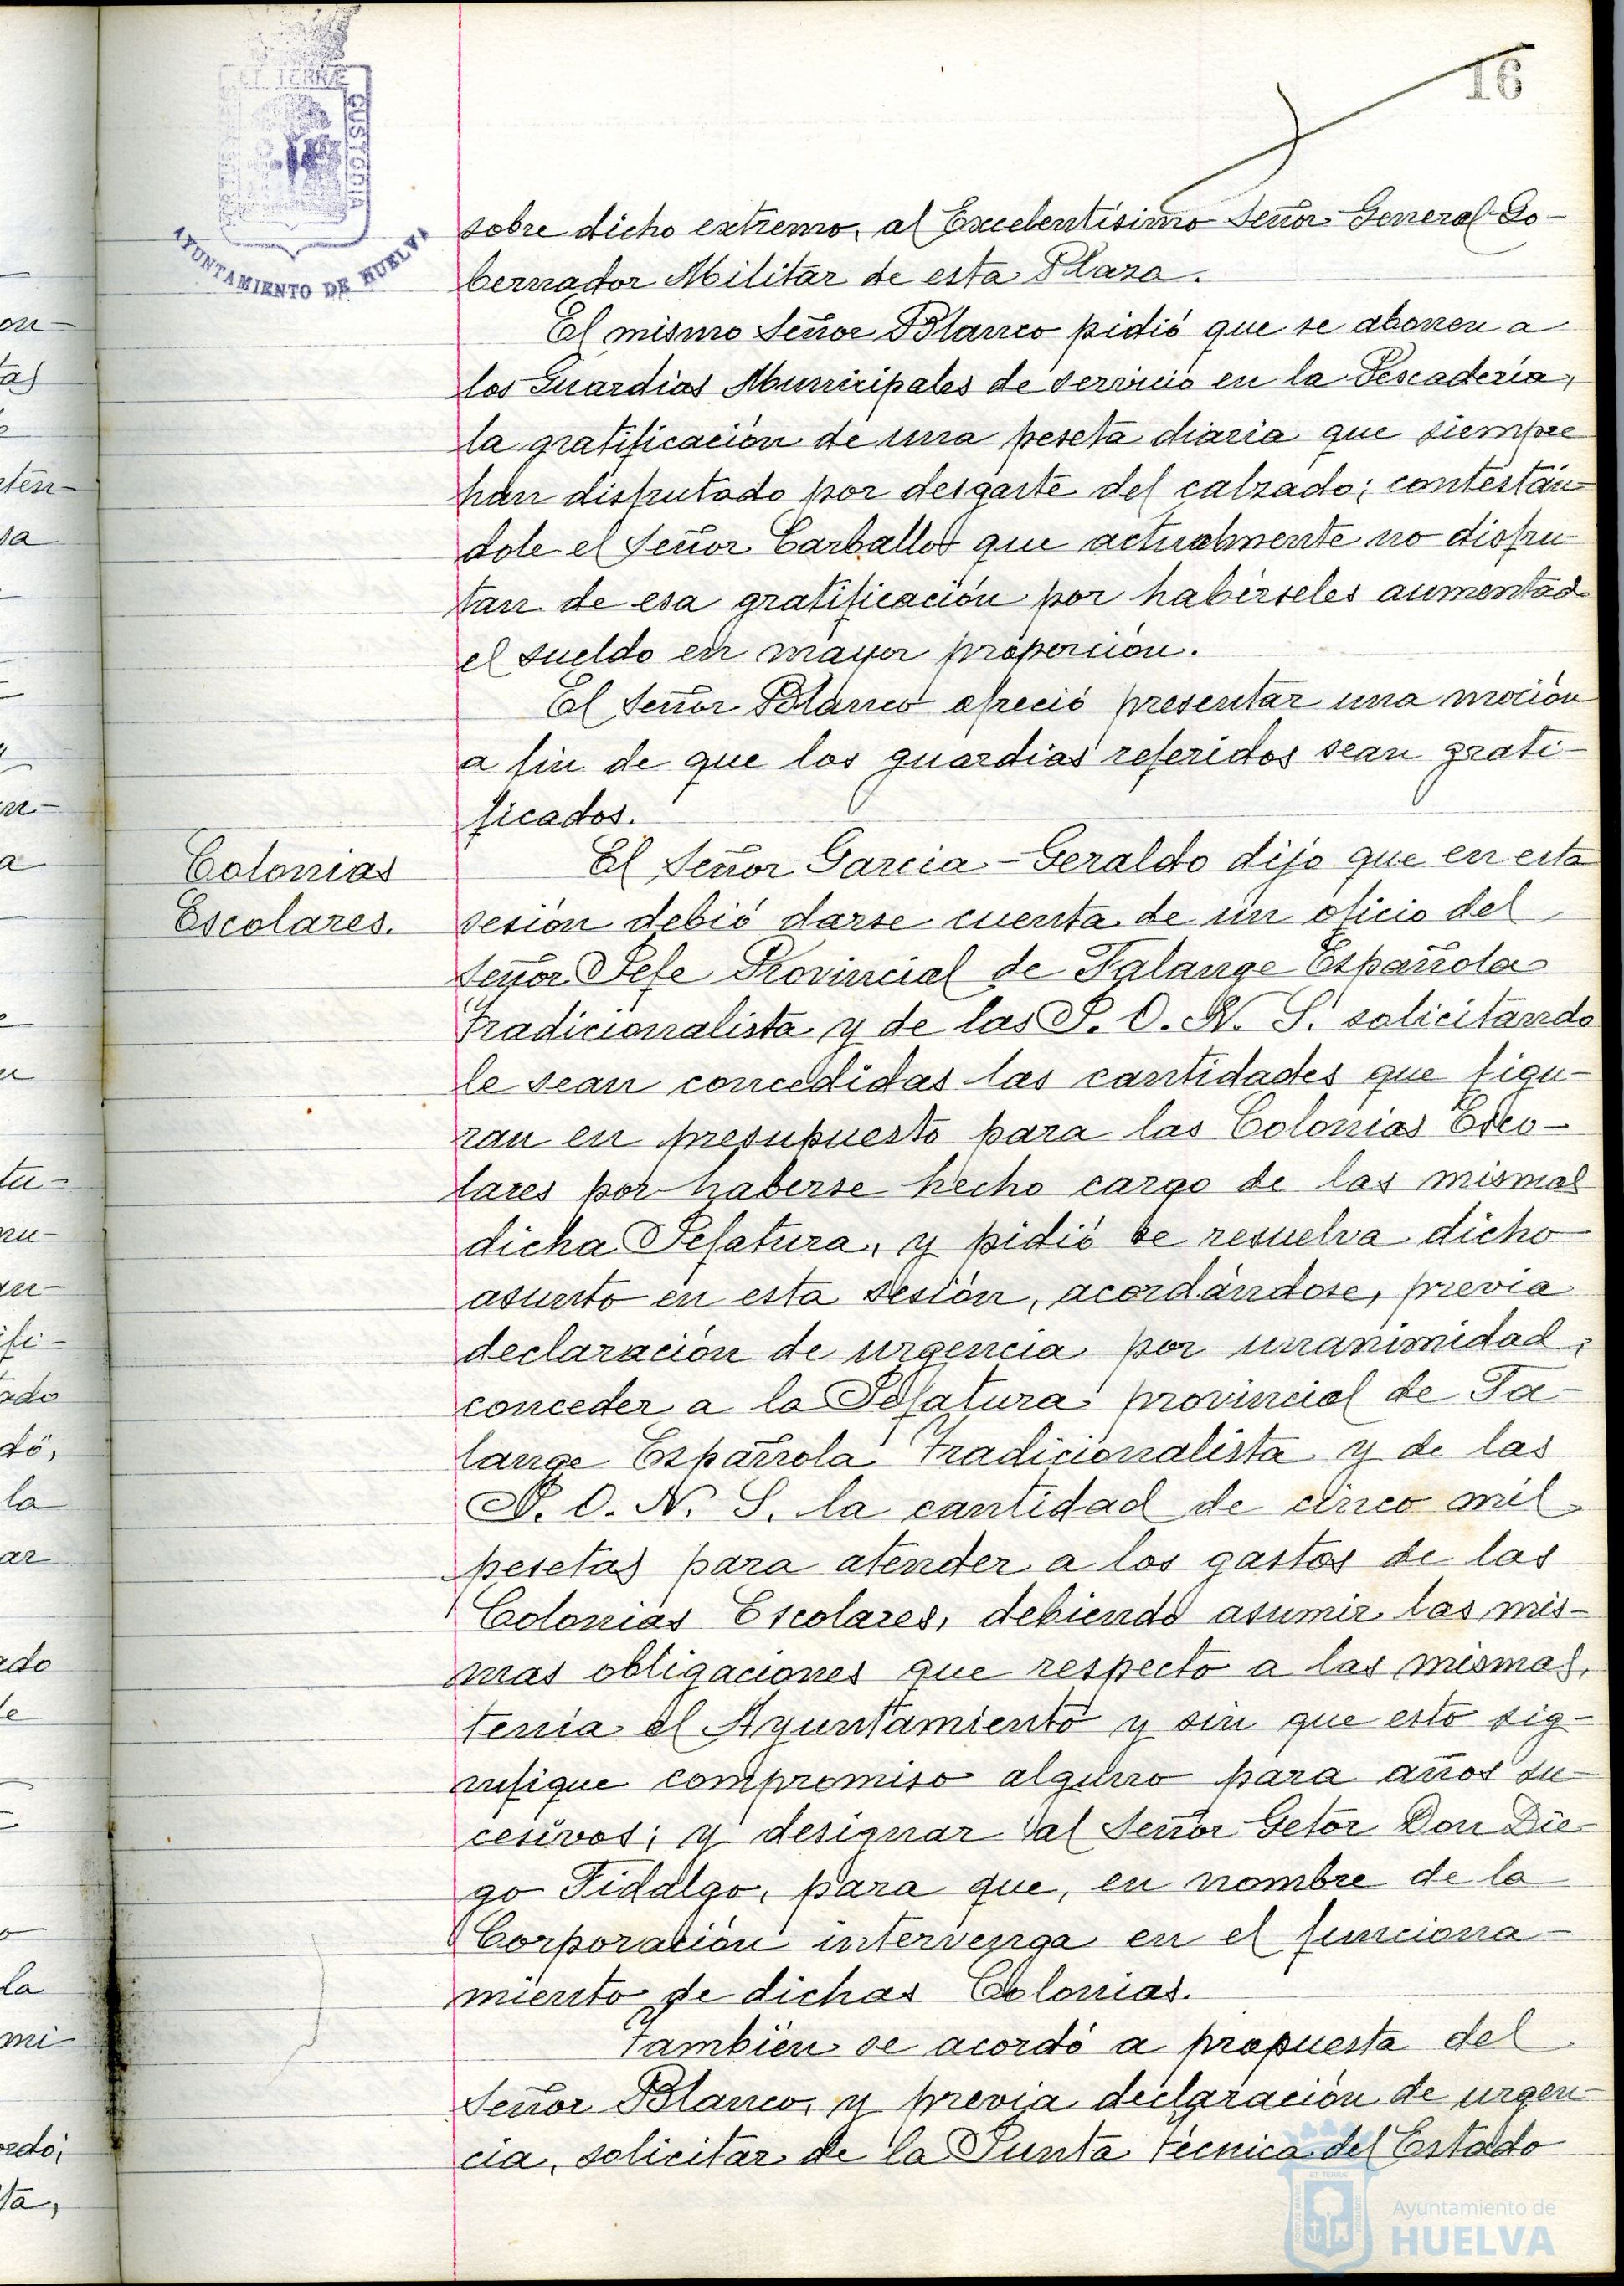 16
ET TERRÆ
CUSTODIA
AYUNTAMIENTO DE HUELVA
sobre dicho extremo, al Excelentísimo Señor General Go-
bernador Militar de esta Plaza.
El mismo Señor Blanco pidió que se abonen a
los Guardias Municipales de servicio en la Pescadería,
la gratificación de una peseta diaria que siempre
han disfrutado por desgaste del calzado; contestán-
dole el Señor Carballo que actualmente no disfru-
tan de esa gratificación por habérseles aumentado
el sueldo en mayor proporción.
El Señor Blanco ofreció presentar una moción
a fin de que los guardias referidos sean grati-
ficados.
Colonias
Escolares.
El Señor García-Geraldo dijo que en esta
sesión debió darse cuenta de un oficio del
Señor Jefe Provincial de Falange Española
Tradicionalista y de las J. O. N. S. solicitando
le sean concedidas las cantidades que figu-
ran en presupuesto para las Colonias Esco-
lares por haberse hecho cargo de las mismas
dicha Jefatura, y pidió se resuelva dicho
asunto en esta sesión, acordándose, previa
declaración de urgencia por unanimidad,
conceder a la Jefatura provincial de Fa-
lange Española Tradicionalista y de las
J. O. N. S. la cantidad de cinco mil
pesetas para atender a los gastos de las
Colonias Escolares, debiendo asumir las mis-
mas obligaciones que respecto a las mismas,
tenía el Ayuntamiento y sin que esto sig-
nifique compromiso alguno para años su-
cesivos; y designar al Señor Getor Don Die-
go Fidalgo, para que, en nombre de la
Corporación intervenga en el funciona-
miento de dichas Colonias.
También se acordó a propuesta del
Señor Blanco, y previa declaración de urgen-
cia, solicitar de la Junta técnica del Estado
Ayuntamiento de
HUELVA